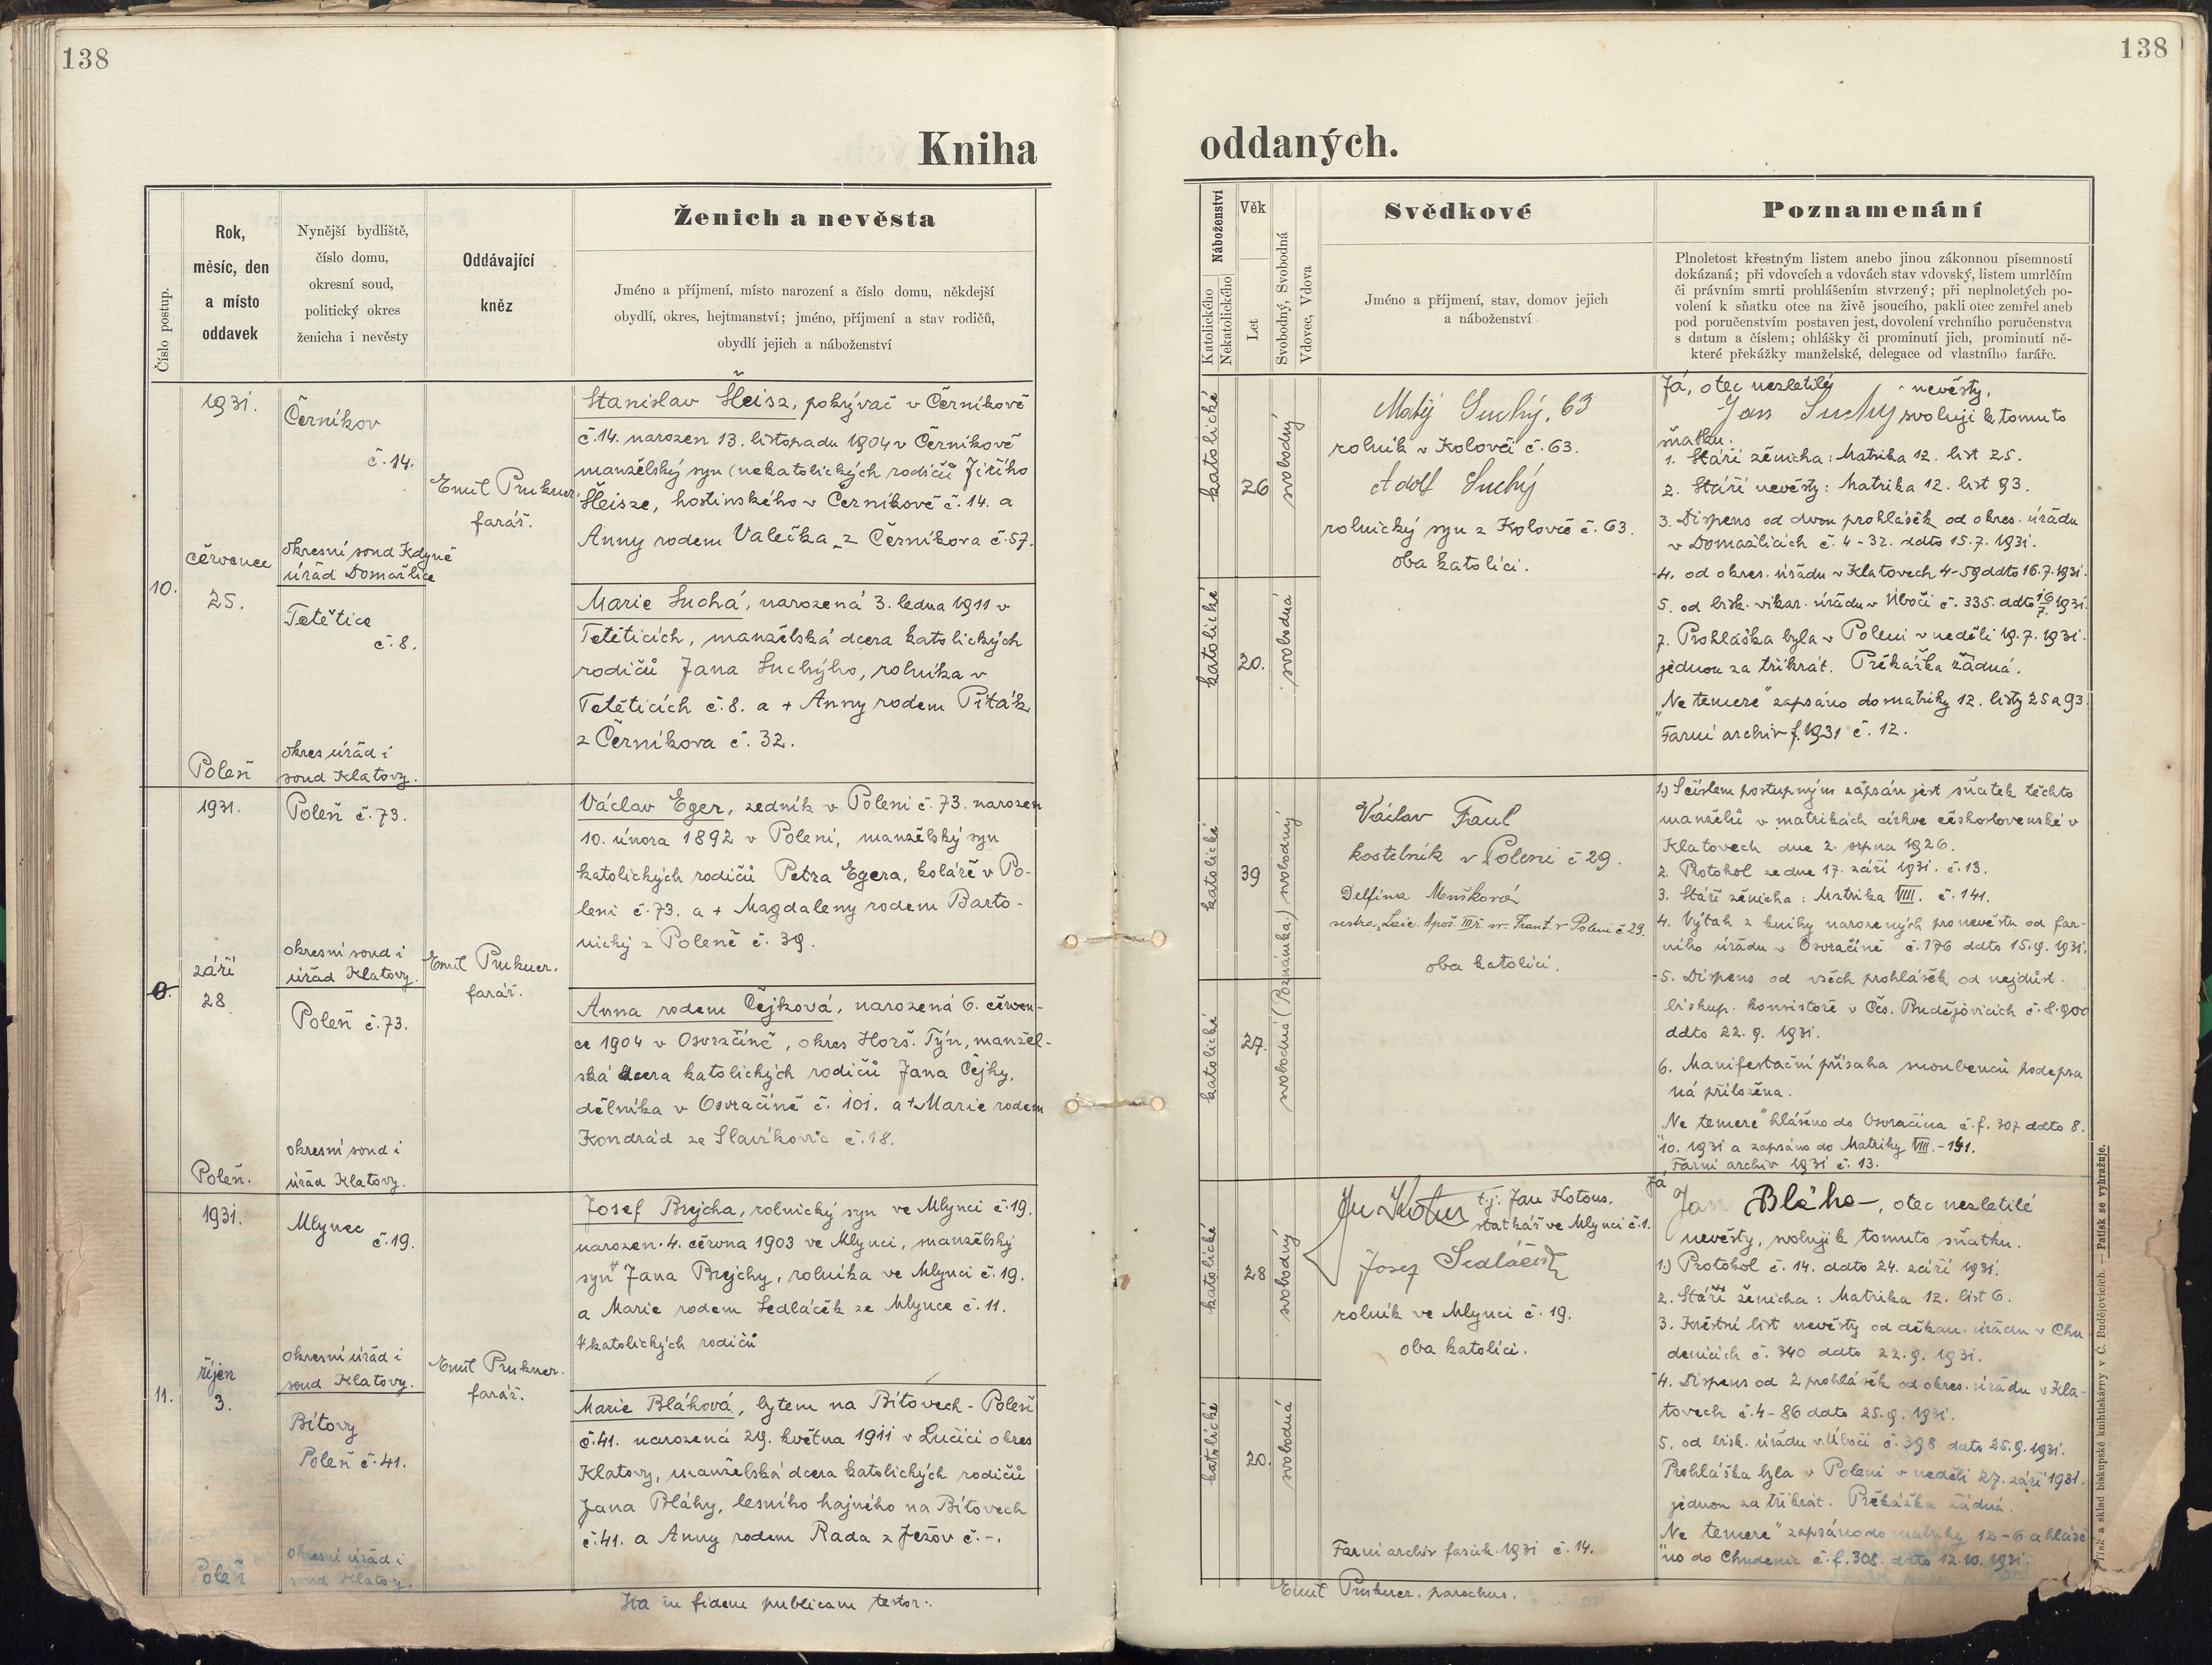 138
138
Kniha
oddaných.
Číslo postup.
Rok,
měsíc, den
a místo
oddavek
Nynější bydliště,
číslo domu,
okresní soud,
politický okres
ženicha i nevěsty
Oddávající
kněz
Ženich a nevěsta
Jméno a příjmení, místo narození a číslo domu, někdejší
obydlí, okres, hejtmanství; jméno, příjmení a stav rodičů,
obydlí jejich a náboženství
Náboženství
Katolického
Nekatolického
Věk
Let
Svobodný, Svobodná
Vdovec, Vdova
Svědkové
Jméno a příjmení, stav, domov jejich
a náboženství
Poznamenání
Plnoletost křestným listem anebo jinou zákonnou písemností
dokázaná; při vdovcích a vdovách stav vdovský, listem umrlčím
či právním smrti prohlášením stvrzený; při neplnoletých po-
volení k sňatku otce na živě jsoucího, pakli otec zemřel aneb
pod poručenstvím postaven jest, dovolení vrchního poručenstva
s datum a číslem; ohlášky či prominutí jich, prominutí ně-
které překážky manželské, delegace od vlastního faráře.
10.
1931.
července
25.
Poleň
Černíkov
č. 14.
okresní soud Kdyně
úřad Domažlice
Tetětice
č. 8.
okres úřad i
soud Klatovy.
Emil Prukner
farář.
Stanislav Šleisz, pokrývač v Černíkově
č. 14. narozen 13. listopadu 1904 v Černíkově
manželský syn (nekatolických rodičů Jiřího
Šleisze, hostinského v Černíkově č. 14. a
Anny rodem Valečka z Černíkova č. 57.
Marie Suchá, narozená 3. ledna 1911 v
Tetěticích, manželská dcera katolických
rodičů Jana Suchýho, rolníka v
Tetěticích č. 8. a + Anny rodem Piták
z Černíkova č. 32.
katolické
26
svobodný
katolické
20.
svobodná
Matěj Suchý, 63
rolník v Kolovči č. 63.
Adolf Suchý
rolnický syn z Kolovče č. 63.
oba katolíci.
Já, otec nezletilé nevěsty,
Jan Suchý svoluji k tomuto
sňatku.
1. Stáří ženicha: Matrika 12. list 25.
2. Stáří nevěsty: Matrika 12. list 93.
3. Dispens od dvou prohlášek od okres. úřadu
v Domažlicích č. 4-32. ddto 15. 7. 1931.
4. od okres. úřadu v Klatovech 4-59 ddto 16. 7. 1931.
5. od bisk. vikar. úřadu v Úboči č. 335. ddto 16/7. 1931.
7. Prohláška byla v Poleni v neděli 19. 7. 1931.
jednou za třikrát. Překážka žádná.
„Ne temere" zapsáno do matriky 12. listy 25 a 93.
Farní archiv f. 1931 č. 12.
0.
1931.
září
28
Poleň.
Poleň č. 73.
okresní soud i
úřad Klatovy.
Poleň č. 73.
okresní soud i
úřad Klatovy.
Emil Prukner.
farář.
Václav Eger, zedník v Poleni č. 73. narozen
10. února 1892 v Poleni, manželský syn
katolických rodičů Petra Egera, koláře v Po-
leni č. 73. a + Magdaleny rodem Barto-
nichý z Poleně č. 39.
Anna rodem Čejková, narozená 6. červen-
ce 1904 v Osvračíně, okres Horš. Týn, manžel-
ská dcera katolických rodičů Jana Čejky,
dělníka v Osvračíně č. 101. a + Marie rodem
Kondrád ze Slavíkovic č. 18.
katolické
39
svobodný
katolické
27.
svobodná (Poznámka)
Václav Faul
kostelník v Poleni č 29.
Delfína Mušková
sestra „Laic. Apoš. III ř. sv. Frant. v Poleni č 29.
oba katolíci.
1.) S číslem postupným zapsán jest sňatek těchto
manželů v matrikách církve československé v
Klatovech dne 2. srpna 1926.
2. Protokol ze dne 17. září 1931. č. 13.
3. Stáří ženicha: Matrika VIII. č. 141.
4. Výtah z knihy narozených pro nevěstu od far-
ního úřadu v Osvračíně č. 176 ddto 15. 9. 1931.
5. Dispens od všech prohlášek od nejdůst.
biskup. konsistoře v Čes. Budějovicích č. 8.900
ddto 22. 9. 1931.
6. Manifestační přísaha snoubenců podepsa
ná přiložena.
„Ne temere" hlášeno do Osvračína č. f. 307 ddto 8.
10. 1931 a zapsáno do Matriky VIII. - 141.
Farní archiv 1931 č. 13.
11.
1931.
říjen
3.
Poleň
Mlynec
č. 19.
okresní úřad i
soud Klatovy.
Bítovy
Poleň č. 41.
okresní úřad i
soud Klatovy.
Emil Prukner.
farář.
Josef Brejcha, rolnický syn ve Mlynci č. 19.
narozen 4. června 1903 ve Mlynci, manželský
syn + Jana Brejchy, rolníka ve Mlynci č. 19.
a Marie rodem Sedláček ze Mlynce č. 11.
+ katolických rodičů
Marie Bláhová, bytem na Bítovech - Poleň
č. 41. narozená 29. května 1911 v Lučici okres
Klatovy, manželská dcera katolických rodičů
Jana Bláhy, lesního hajného na Bítovech
č. 41. a Anny rodem Rada z Ježov č. -.
katolické
28
svobodný
katolické
20.
svobodná
t. j. Jan Kotous,
statkář ve Mlynci č. 1.
Josef Sedláček
rolník ve Mlynci č. 19.
oba katolíci.
Farní archiv fascik. 1931 č. 14.
Já
Jan Bláha, otec nezletilé
nevěsty, svoluji k tomuto sňatku.
1.) Protokol č. 14. ddto 24. září 1931.
2. Stáří ženicha: Matrika 12. list 6.
3. Křestní list nevěsty od děkan. úřadu v Chu-
denicích č. 340 ddto 22. 9. 1931.
4. Dispens od 2 prohlášek od okres. úřadu v Kla-
tovech č. 4-86 ddto 25. 9. 1931.
5. od bisk. úřadu v Úboči č. 398 dato 25. 9. 1931.
Prohláška byla v Poleni v neděli 27. září 1931.
jednou za třikrát. Překážka žádná.
„Ne temere" zapsáno do matriky 12-6 a hláše
no do Chudenic č. f. 308. ddto 12. 10. 1931.
Ita in fidem publicam testor:
Emil Prukner. parochus.
Tisk a sklad biskupské knihtiskárny v Č. Budějovicích. — Patisk se vyhražuje.